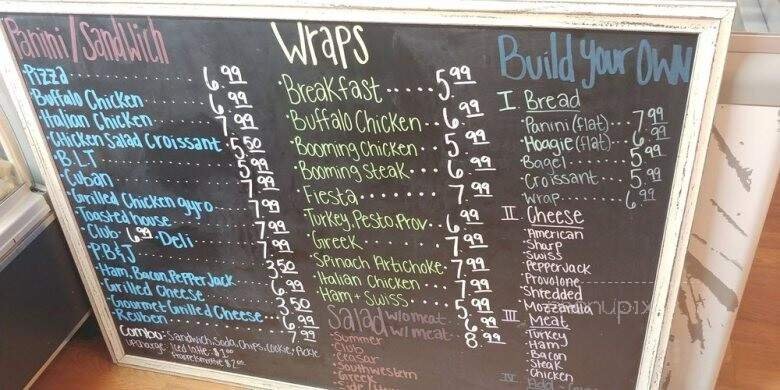 Panini/Sandwich
·Pizza 6.99
·Buffalo Chicken 6.99
·Italian Chicken 7.99
·Chicken Salad Croissant 5.50
·B.L.T 5.99
·Cuban 7.99
·Grilled Chicken gyro 7.99
·Toasted house 7.99
·Club 6.99 ·Deli 7.99
·P.B.&J 3.50
·Ham, Bacon, Pepper Jack 6.99
·Grilled Cheese 3.50
·Gourmet Grilled Cheese 6.99
·Reuben 7.99
Combo: Sandwich, Soda, Chips, Cookie, Pickle
upcharge: Iced latte: $1.00
frappe/smoothie $2.00
Wraps
·Breakfast 5.99
·Buffalo Chicken 6.99
·Booming Chicken 5.99
·Booming Steak 6.99
·Fiesta 7.99
·Turkey, Pesto, Prov. 6.99
·Greek 7.99
·Spinach Artichoke 7.99
·Italian Chicken 7.99
·Ham + Swiss 5.99
Salad w/o meat 6.99
w/ meat 8.99
·Summer
·Club
·Ceasar
·Southwestern
·Greek
Build your own
I Bread
Panini (flat) 7.99
Hoagie (flat) 6.99
Bagel 5.99
Croissant 5.99
Wrap 6.99
II Cheese
American
Sharp
Swiss
Pepperjack
Provolone
Shredded
Mozzarella
III Meat
Turkey
Ham
Bacon
Steak
Chicken
IV
menupix